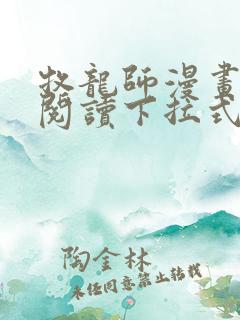 牧龍師漫畫
閱讀下拉式
陶金林
未經同意禁止轉載